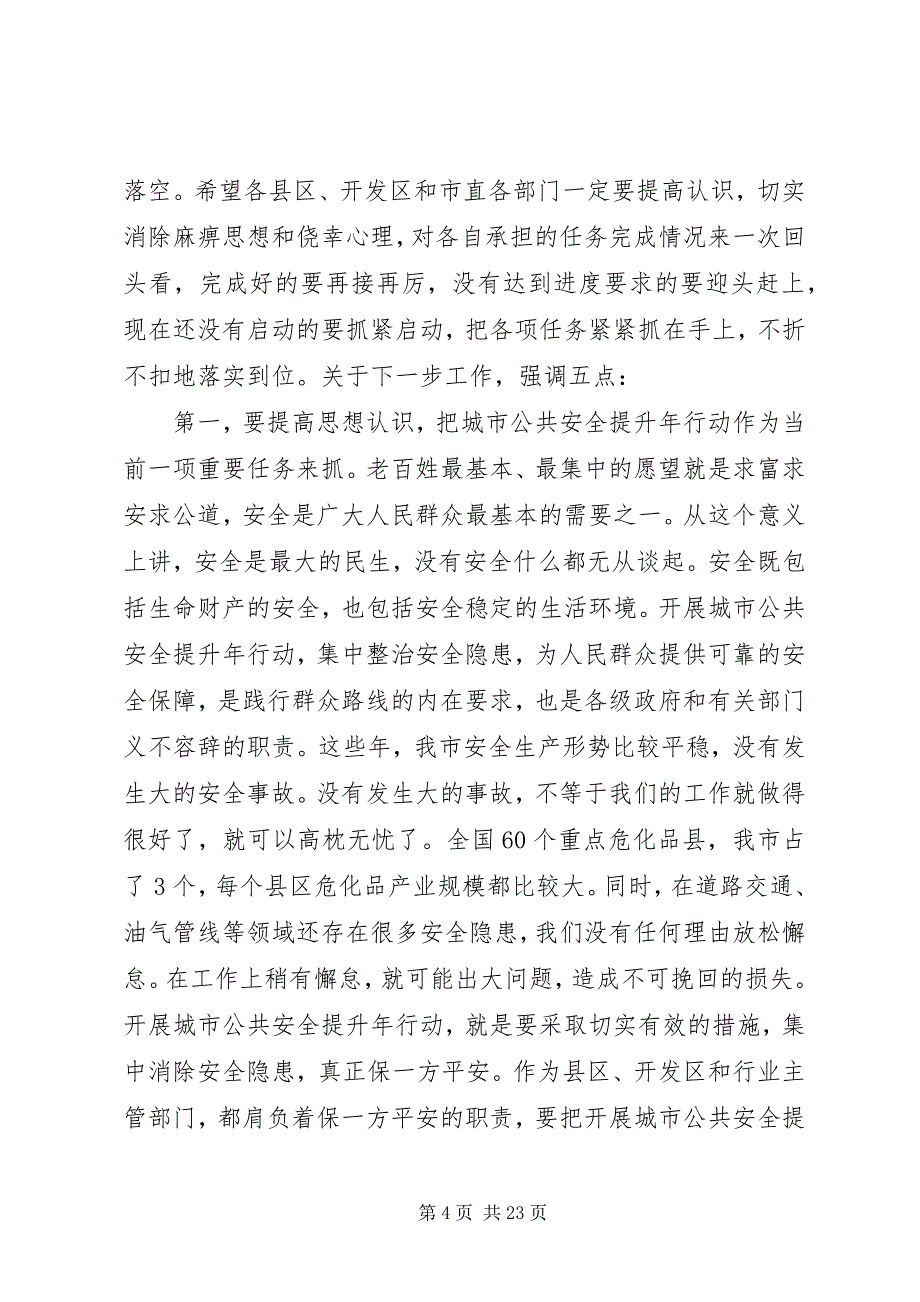 落空。希望各县区、开发区和市直各部门一定要提高认识，切实
消除麻痹思想和侥幸心理，对各自承担的任务完成情况来一次回
头看，完成好的要再接再厉，没有达到进度要求的要迎头赶上，
现在还没有启动的要抓紧启动，把各项任务紧紧抓在手上，不折
不扣地落实到位。关于下一步工作，强调五点：
第一，要提高思想认识，把城市公共安全提升年行动作为当
前一项重要任务来抓。老百姓最基本、最集中的愿望就是求富求
安求公道，安全是广大人民群众最基本的需要之一。从这个意义
上讲，安全是最大的民生，没有安全什么都无从谈起。安全既包
括生命财产的安全，也包括安全稳定的生活环境。开展城市公共
安全提升年行动，集中整治安全隐患，为人民群众提供可靠的安
全保障，是践行群众路线的内在要求，也是各级政府和有关部门
义不容辞的职责。这些年，我市安全生产形势比较平稳，没有发
生大的安全事故。没有发生大的事故，不等于我们的工作就做得
很好了，就可以高枕无忧了。全国 60 个重点危化品县，我市占
了 3 个，每个县区危化品产业规模都比较大。同时，在道路交通、
油气管线等领域还存在很多安全隐患，我们没有任何理由放松懈
怠。在工作上稍有懈怠，就可能出大问题，造成不可挽回的损失。
开展城市公共安全提升年行动，就是要采取切实有效的措施，集
中消除安全隐患，真正保一方平安。作为县区、开发区和行业主
管部门，都肩负着保一方平安的职责，要把开展城市公共安全提
第 4 页 共 23 页